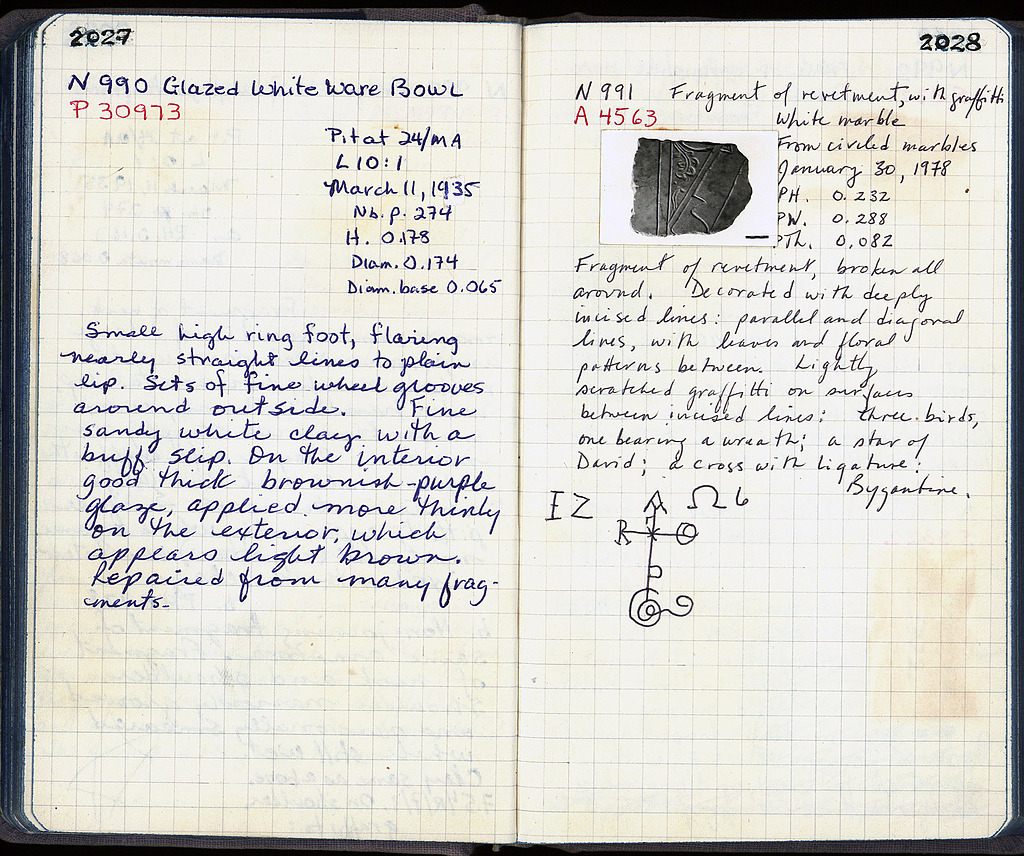 2027
N 990 Glazed White Ware Bowl
P 30973
Pit at 24/MA
L 10:1
March 11, 1935
Nb. p. 274
H. 0.178
Diam. 0.174
Diam. base 0.065
Small high ring foot, flaring
nearly straight lines to plain
lip. Sets of fine wheel grooves
around outside. Fine
sandy white clay with a
buff slip. On the interior
good thick brownish-purple
glaze, applied more thinly
on the exterior, which
appears light brown.
Repaired from many frag-
ments.
2028
N 991 Fragment of revetment, with graffiti
A 4563
White marble
From circled marbles
January 30, 1978
PH. 0.232
PW. 0.288
PTh. 0.082
Fragment of revetment, broken all
around. Decorated with deeply
incised lines: parallel and diagonal
lines, with leaves and floral
patterns between. Lightly
scratched graffitti on surfaces
between incised lines: three birds,
one bearing a wreath; a star of
David; a cross with ligature:
Byzantine.
IZ
Ω
R